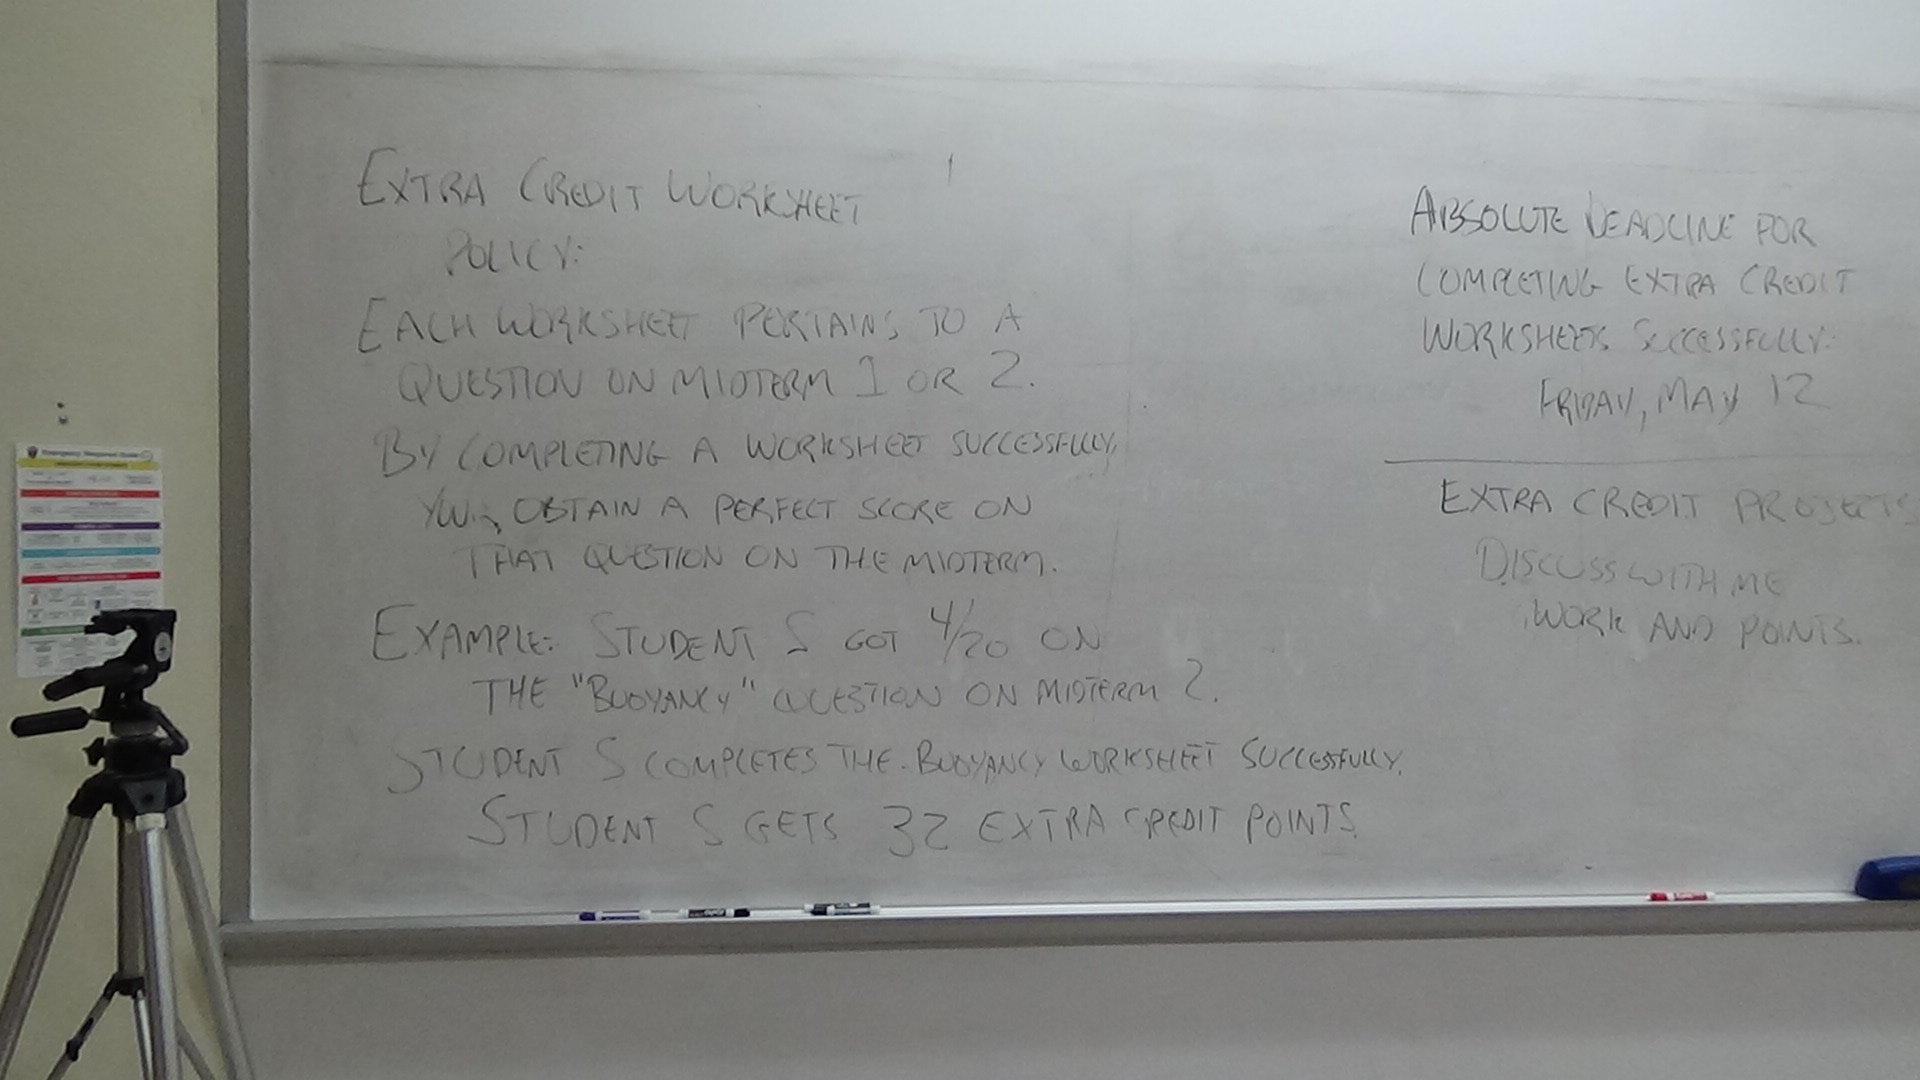 EXTRA CREDIT WORKSHEET
POLICY:
EACH WORKSHEET PERTAINS TO A
QUESTION ON MIDTERM 1 OR 2.
BY COMPLETING A WORKSHEET SUCCESSFULLY,
YOU OBTAIN A PERFECT SCORE ON
THAT QUESTION ON THE MIDTERM.
EXAMPLE: STUDENT S GOT 4/20 ON
THE "BUOYANCY" QUESTION ON MIDTERM 2.
STUDENT S COMPLETES THE BUOYANCY WORKSHEET SUCCESSFULLY.
STUDENT S GETS 32 EXTRA CREDIT POINTS.
ABSOLUTE DEADLINE FOR
COMPLETING EXTRA CREDIT
WORKSHEETS SUCCESSFULLY:
FRIDAY, MAY 12
EXTRA CREDIT PROJECTS
DISCUSS WITH ME
WORK AND POINTS.
Emergency Response Guide